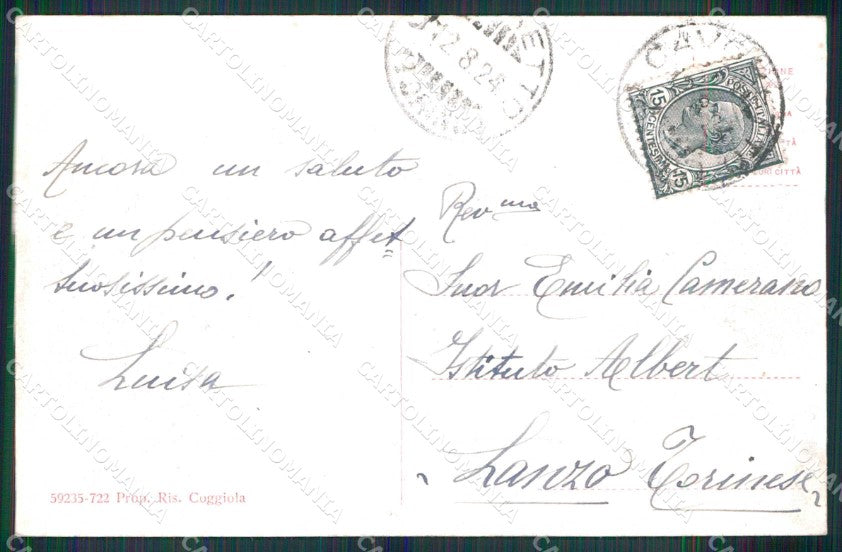 Ancora un saluto
e un pensiero affet
tuosissimo!
Luisa
Rev ma
Suor Emilia Camerano
Istituto Albert
Lanzo Torinese
59235-722 Prop. Ris. Coggiola
12.8.24
15
15
CARTOLINOMANIA